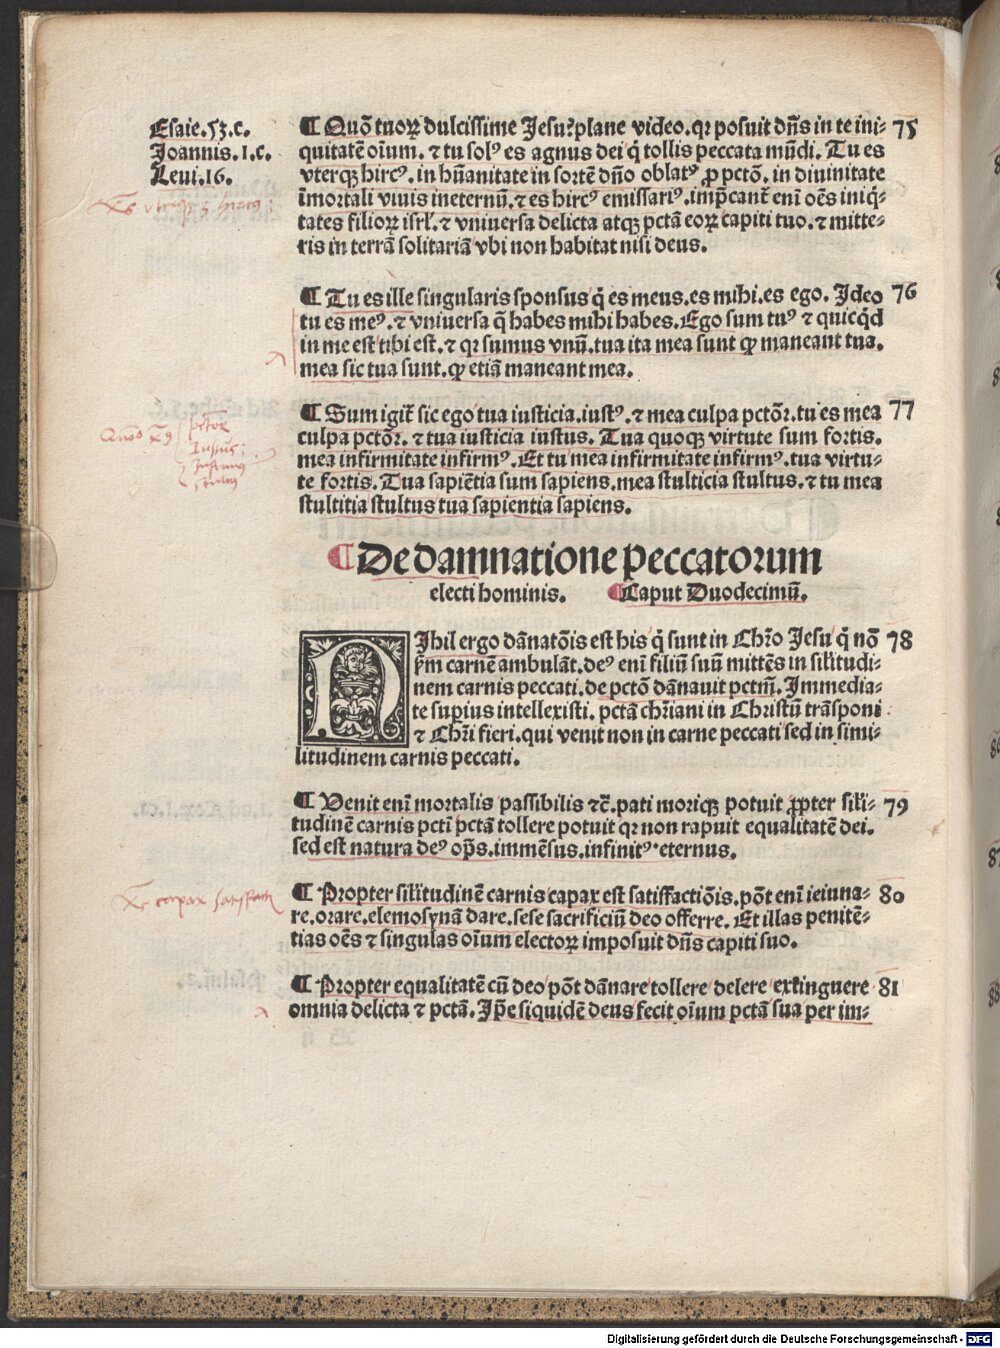 Esaie.53.c.
Joannis.1.c.
Leui.16.
¶ Quō tuoꝝ dulcissime Jesu? plane video. qꝛ posuit dn̄s in te ini- 75
quitatē oīum. ⁊ tu solꝰ es agnus dei q̇ tollis peccata mūdi. Tu es
vterqꝫ hircꝰ. in hūanitate in sortē dn̄o oblatꝰ ꝓ pctō. in diuinitate
īmortali viuis ineternū. ⁊ es hircꝰ emissariꝰ. imp̄cant̄ enī oēs iniq̇-
tates filioꝝ isrl̓. ⁊ vniuersa delicta atqꝫ pctā eoꝝ capiti tuo. ⁊ mitte-
ris in terrā solitariā vbi non habitat nisi deus.
¶ Tu es ille singularis sponsus q̇ es meus. es mihi. es ego. Ideo 76
tu es meꝰ. ⁊ vniuersa q̄ habes mihi habes. Ego sum tuꝰ ⁊ quicq̇d
in me est tibi est. ⁊ qꝛ sumus vnū. tua ita mea sunt ꝙ maneant tua.
mea sic tua sunt. ꝙ etiā maneant mea.
¶ Sum igit̄ sic ego tua iusticia. iustꝰ. ⁊ mea culpa pctōꝛ. tu es mea 77
culpa pctōꝛ. ⁊ tua iusticia iustus. Tua quoqꝫ virtute sum fortis.
mea infirmitate infirmꝰ. Et tu mea infirmitate infirmꝰ. tua virtu-
te fortis. Tua sapiētia sum sapiens. mea stulticia stultus. ⁊ tu mea
stultitia stultus tua sapientia sapiens.
¶ De damnatione peccatorum
electi hominis. ¶ Caput Duodecimū.
NIhil ergo dānatōis est his q̇ sunt in Chr̄o Jesu q̇ nō 78
ẜm carnē ambulāt. deꝰ enī filiū suū mittēs in sil̓itudi-
nem carnis peccati. de pctō dānauit pctm̄. Immedia-
te supius intellexisti. pctā chr̄iani in Christū trāsponi
⁊ Chr̄i fieri. qui venit non in carne peccati sed in simi-
litudinem carnis peccati.
¶ Venit enī mortalis passibilis ⁊c̄. pati moriqꝫ potuit ꝓpter sil̓i- 79
tudinē carnis pcti pctā tollere potuit qꝛ non rapuit equalitatē dei.
sed est natura deꝰ op̄s. immēsus. infinitꝰ eternus.
Xs capax satisfact
¶ Propter sil̓itudinē carnis capax est satisfactiōis. pōt enī ieiuna- 80
re. orare. elemosynā dare. sese sacrificiū deo offerre. Et illas penitē-
tias oēs ⁊ singulas oīum electoꝝ imposuit dn̄s capiti suo.
¶ Propter equalitatē cū deo pōt dānare tollere delere extinguere 81
omnia delicta ⁊ pctā. Ip̄e siquidē deus fecit oīum pctā sua per im-
Digitalisierung gefördert durch die Deutsche Forschungsgemeinschaft - DFG